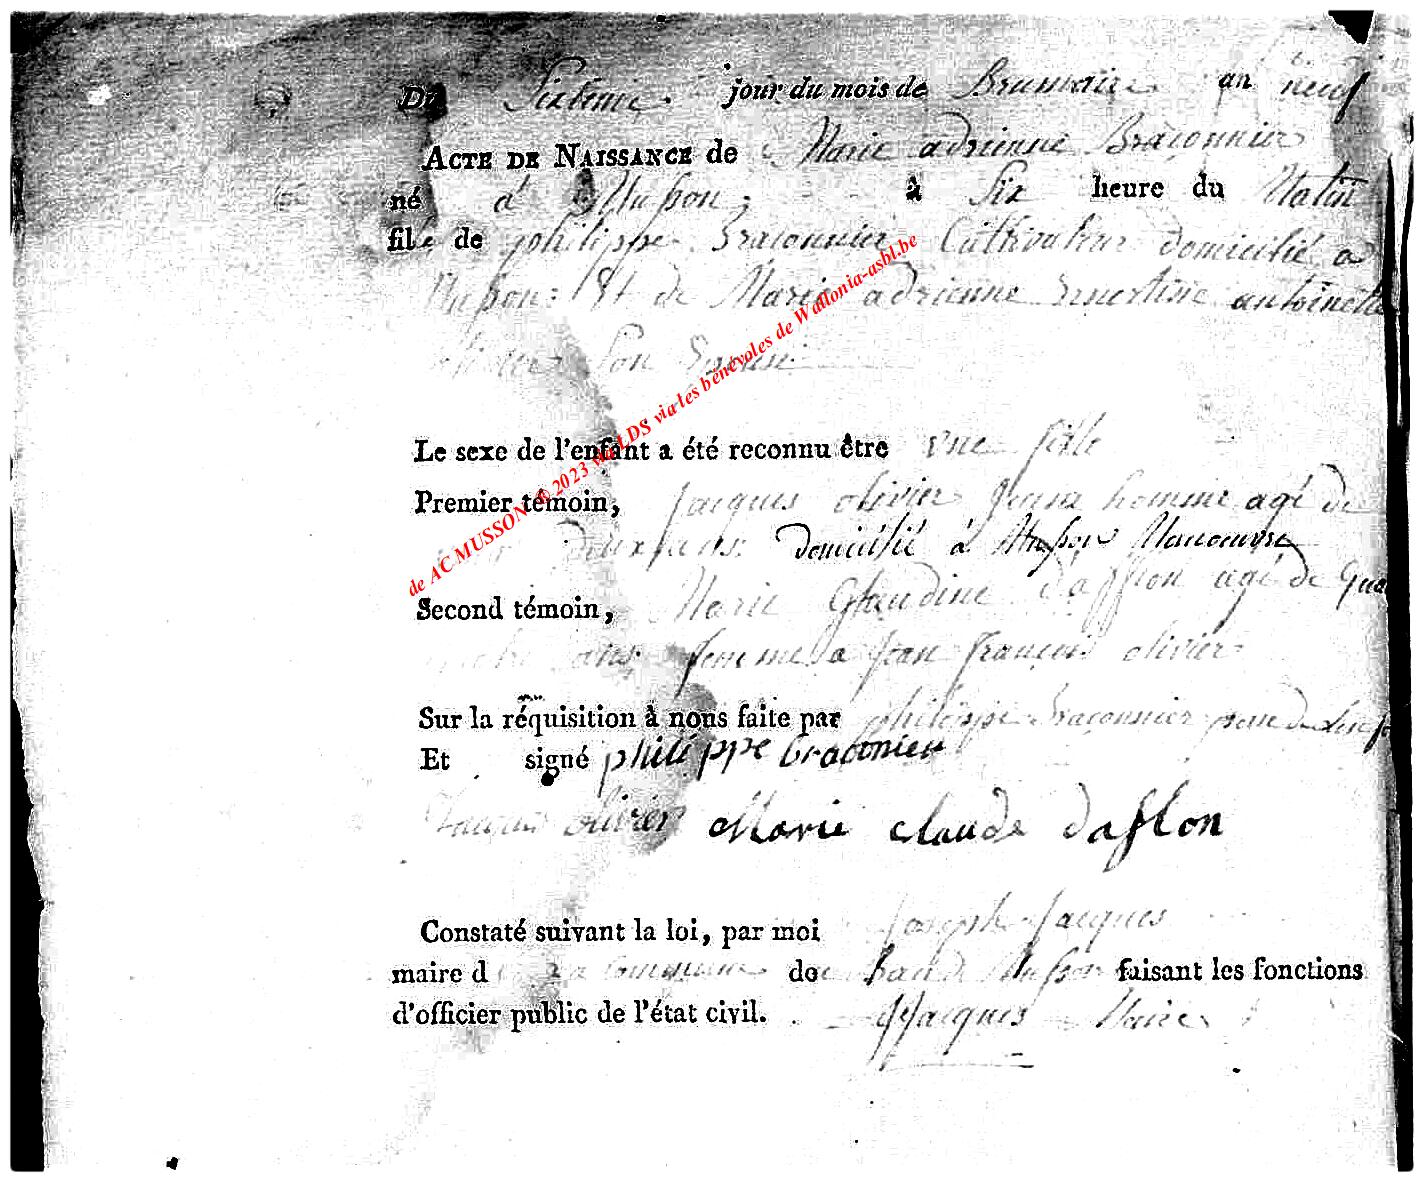 Du Sixieme jour du mois de Brumaire an neuf
ACTE DE NAISSANCE de Marie adrienne Braçonnier
né à Musson à Six heure du Matin
fille de philippe Braconnier Cultivateur domicilié a
Musson Et de Marie adrienne Ernestine antoinette
olivier Son Epouse
Le sexe de l'enfant a été reconnu être une fille
Premier témoin, Jacques olivier Jeune homme agé de
deux ans domicilié à Musson Manoeuvre
Second témoin, Marie Glaudine dafflon agé de Qua
ans femme a Jean françois olivier
Sur la réquisition à nous faite par philippe Braçonnier pere de
Et signé philippe braconier
Jacques olivier Marie claude daflon
Constaté suivant la loi, par moi Joseph Jacques
maire d La Commune de Musson faisant les fonctions
d'officier public de l'état civil. JJacques Maire
de AC MUSSON © 2023 via LDS via les bénévoles de Wallonia-asbl.be